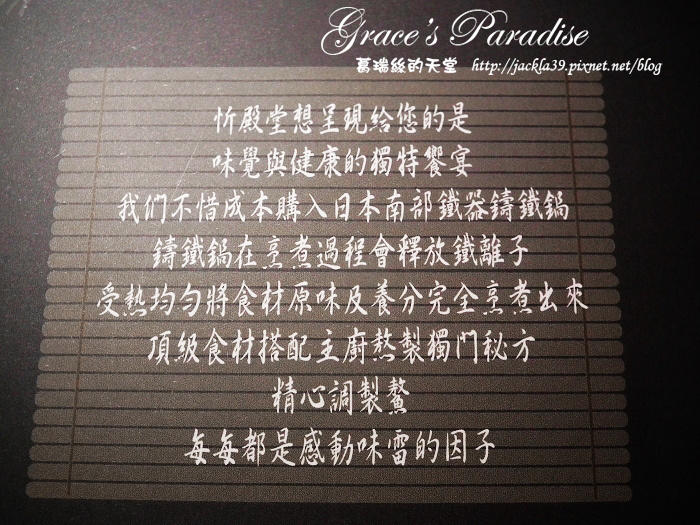 Grace's Paradise
葛瑞絲的天堂 http://jackla39.pixnet.net/blog
忻殿堂想呈現給您的是
味覺與健康的獨特饗宴
我们不惜成本購入日本南部鐵器鑄鐵鍋
鑄鐵鍋在烹煮過程會釋放鐵離子
受熱均勻將食材原味及養分完全烹煮出來
頂級食材搭配主廚熬製獨門秘方
精心調製鰲
每每都是感動味雷的因子